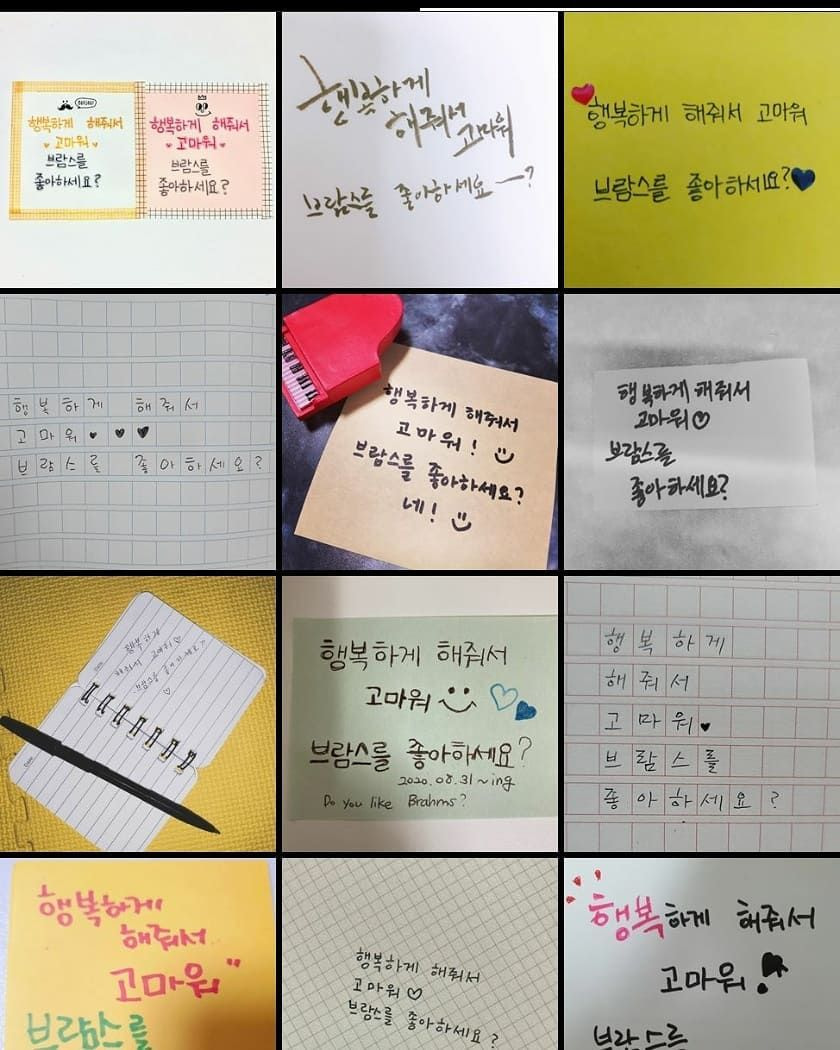 행복하게 해줘서
고마워
브람스를
좋아하세요?
행복하게 해줘서
고마워
브람스를
좋아하세요?
행복하게
해줘서
고마워
브람스를 좋아하세요?
행복하게 해줘서 고마워
브람스를 좋아하세요?
행복하게 해줘서
고마워
브람스를 좋아하세요?
행복하게 해줘서
고마워!
브람스를 좋아하세요?
네!
행복하게 해줘서
고마워
브람스를
좋아하세요?
행복하게
해줘서 고마워
브람스를 좋아하세요?
행복하게 해줘서
고마워
브람스를 좋아하세요?
2020.08.31~ing
Do you like Brahms?
행복하게
해줘서
고마워
브람스를
좋아하세요?
행복하게
해줘서
고마워
브람스를
행복하게 해줘서
고마워
브람스를 좋아하세요?
행복하게 해줘서
고마워!
브람스를